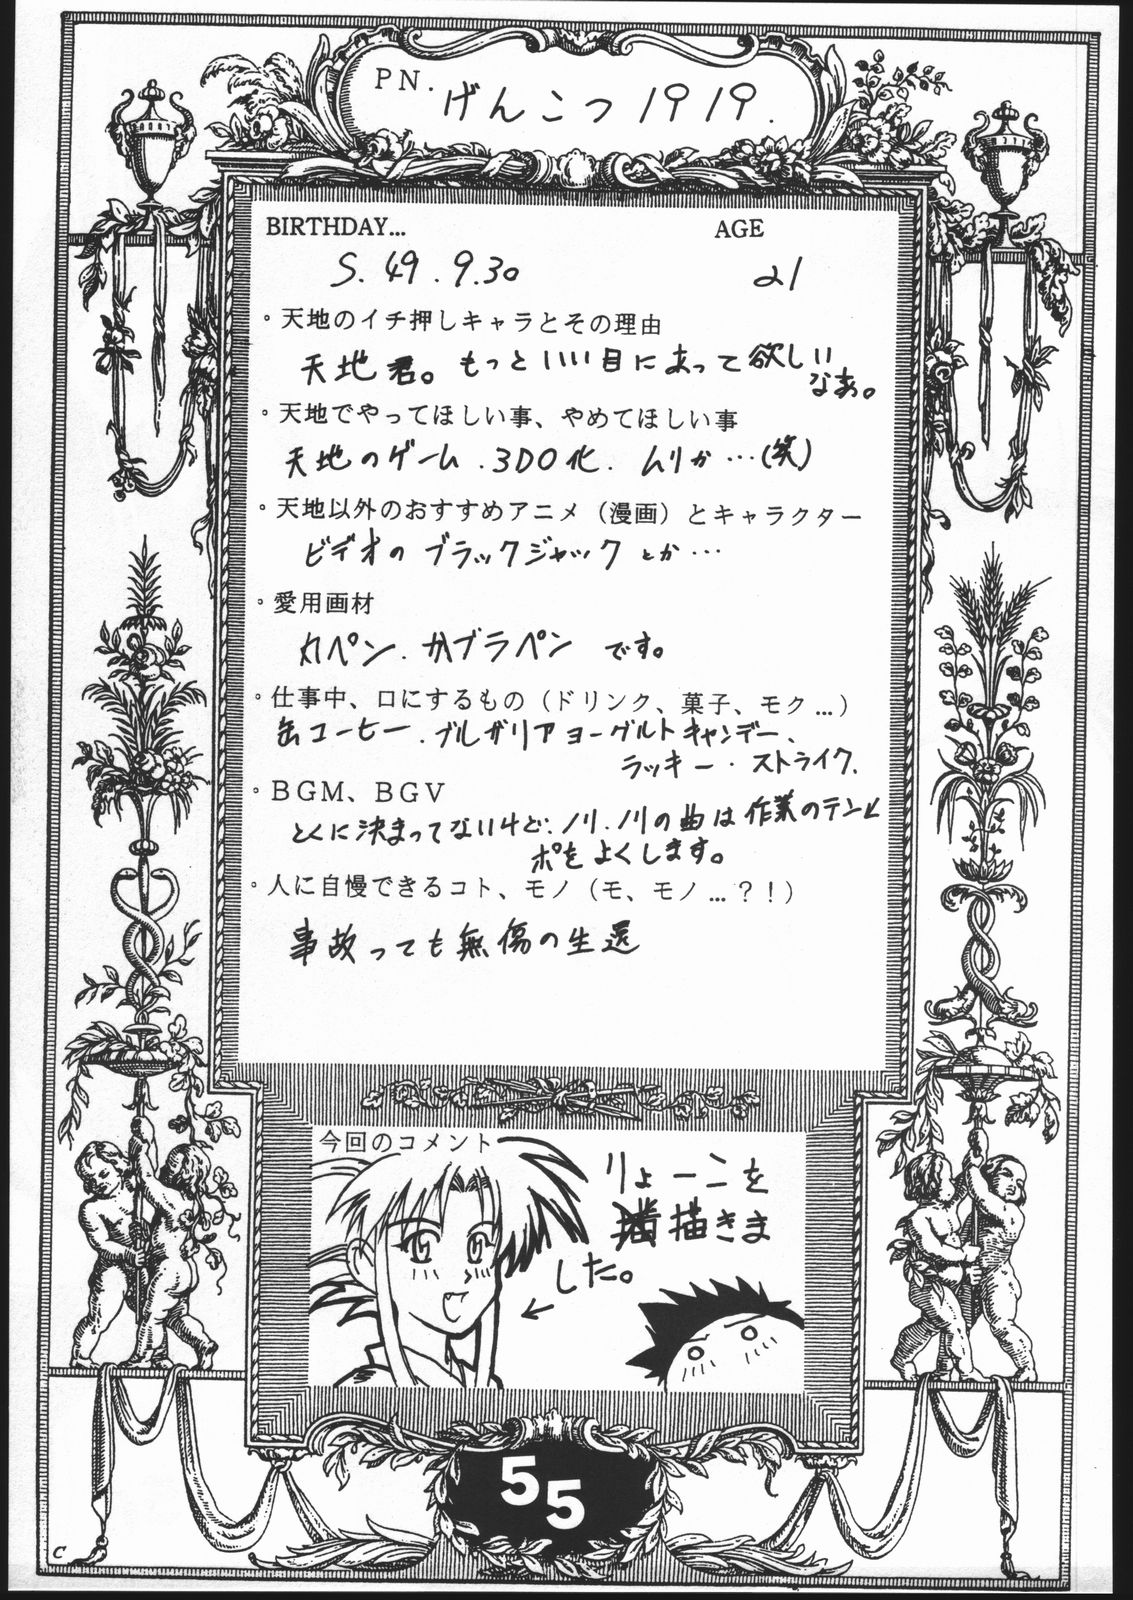 PN.
げんこつ1919.
BIRTHDAY... AGE
S. 49. 9. 30 21
・天地のイチ押しキャラとその理由
天地君。もっといい目にあって欲しい
なあ。
・天地でやってほしい事、やめてほしい事
天地のゲーム.3DO化. ムリか…(笑)
・天地以外のおすすめアニメ（漫画）とキャラクター
ビデオのブラックジャックとか…
・愛用画材
丸ペン.カブラペン です。
・仕事中、口にするもの（ドリンク、菓子、モク...）
缶コーヒー.ブルガリアヨーグルトキャンデー、
ラッキー・ストライク.
・BGM、BGV
とくに決まってないけど、ノリ.ノリの曲は作業のテン
ポをよくします。
・人に自慢できるコト、モノ（モ、モノ...？！）
事故っても無傷の生還
今回のコメント
りょーこを
描きま
した。
←
55
C